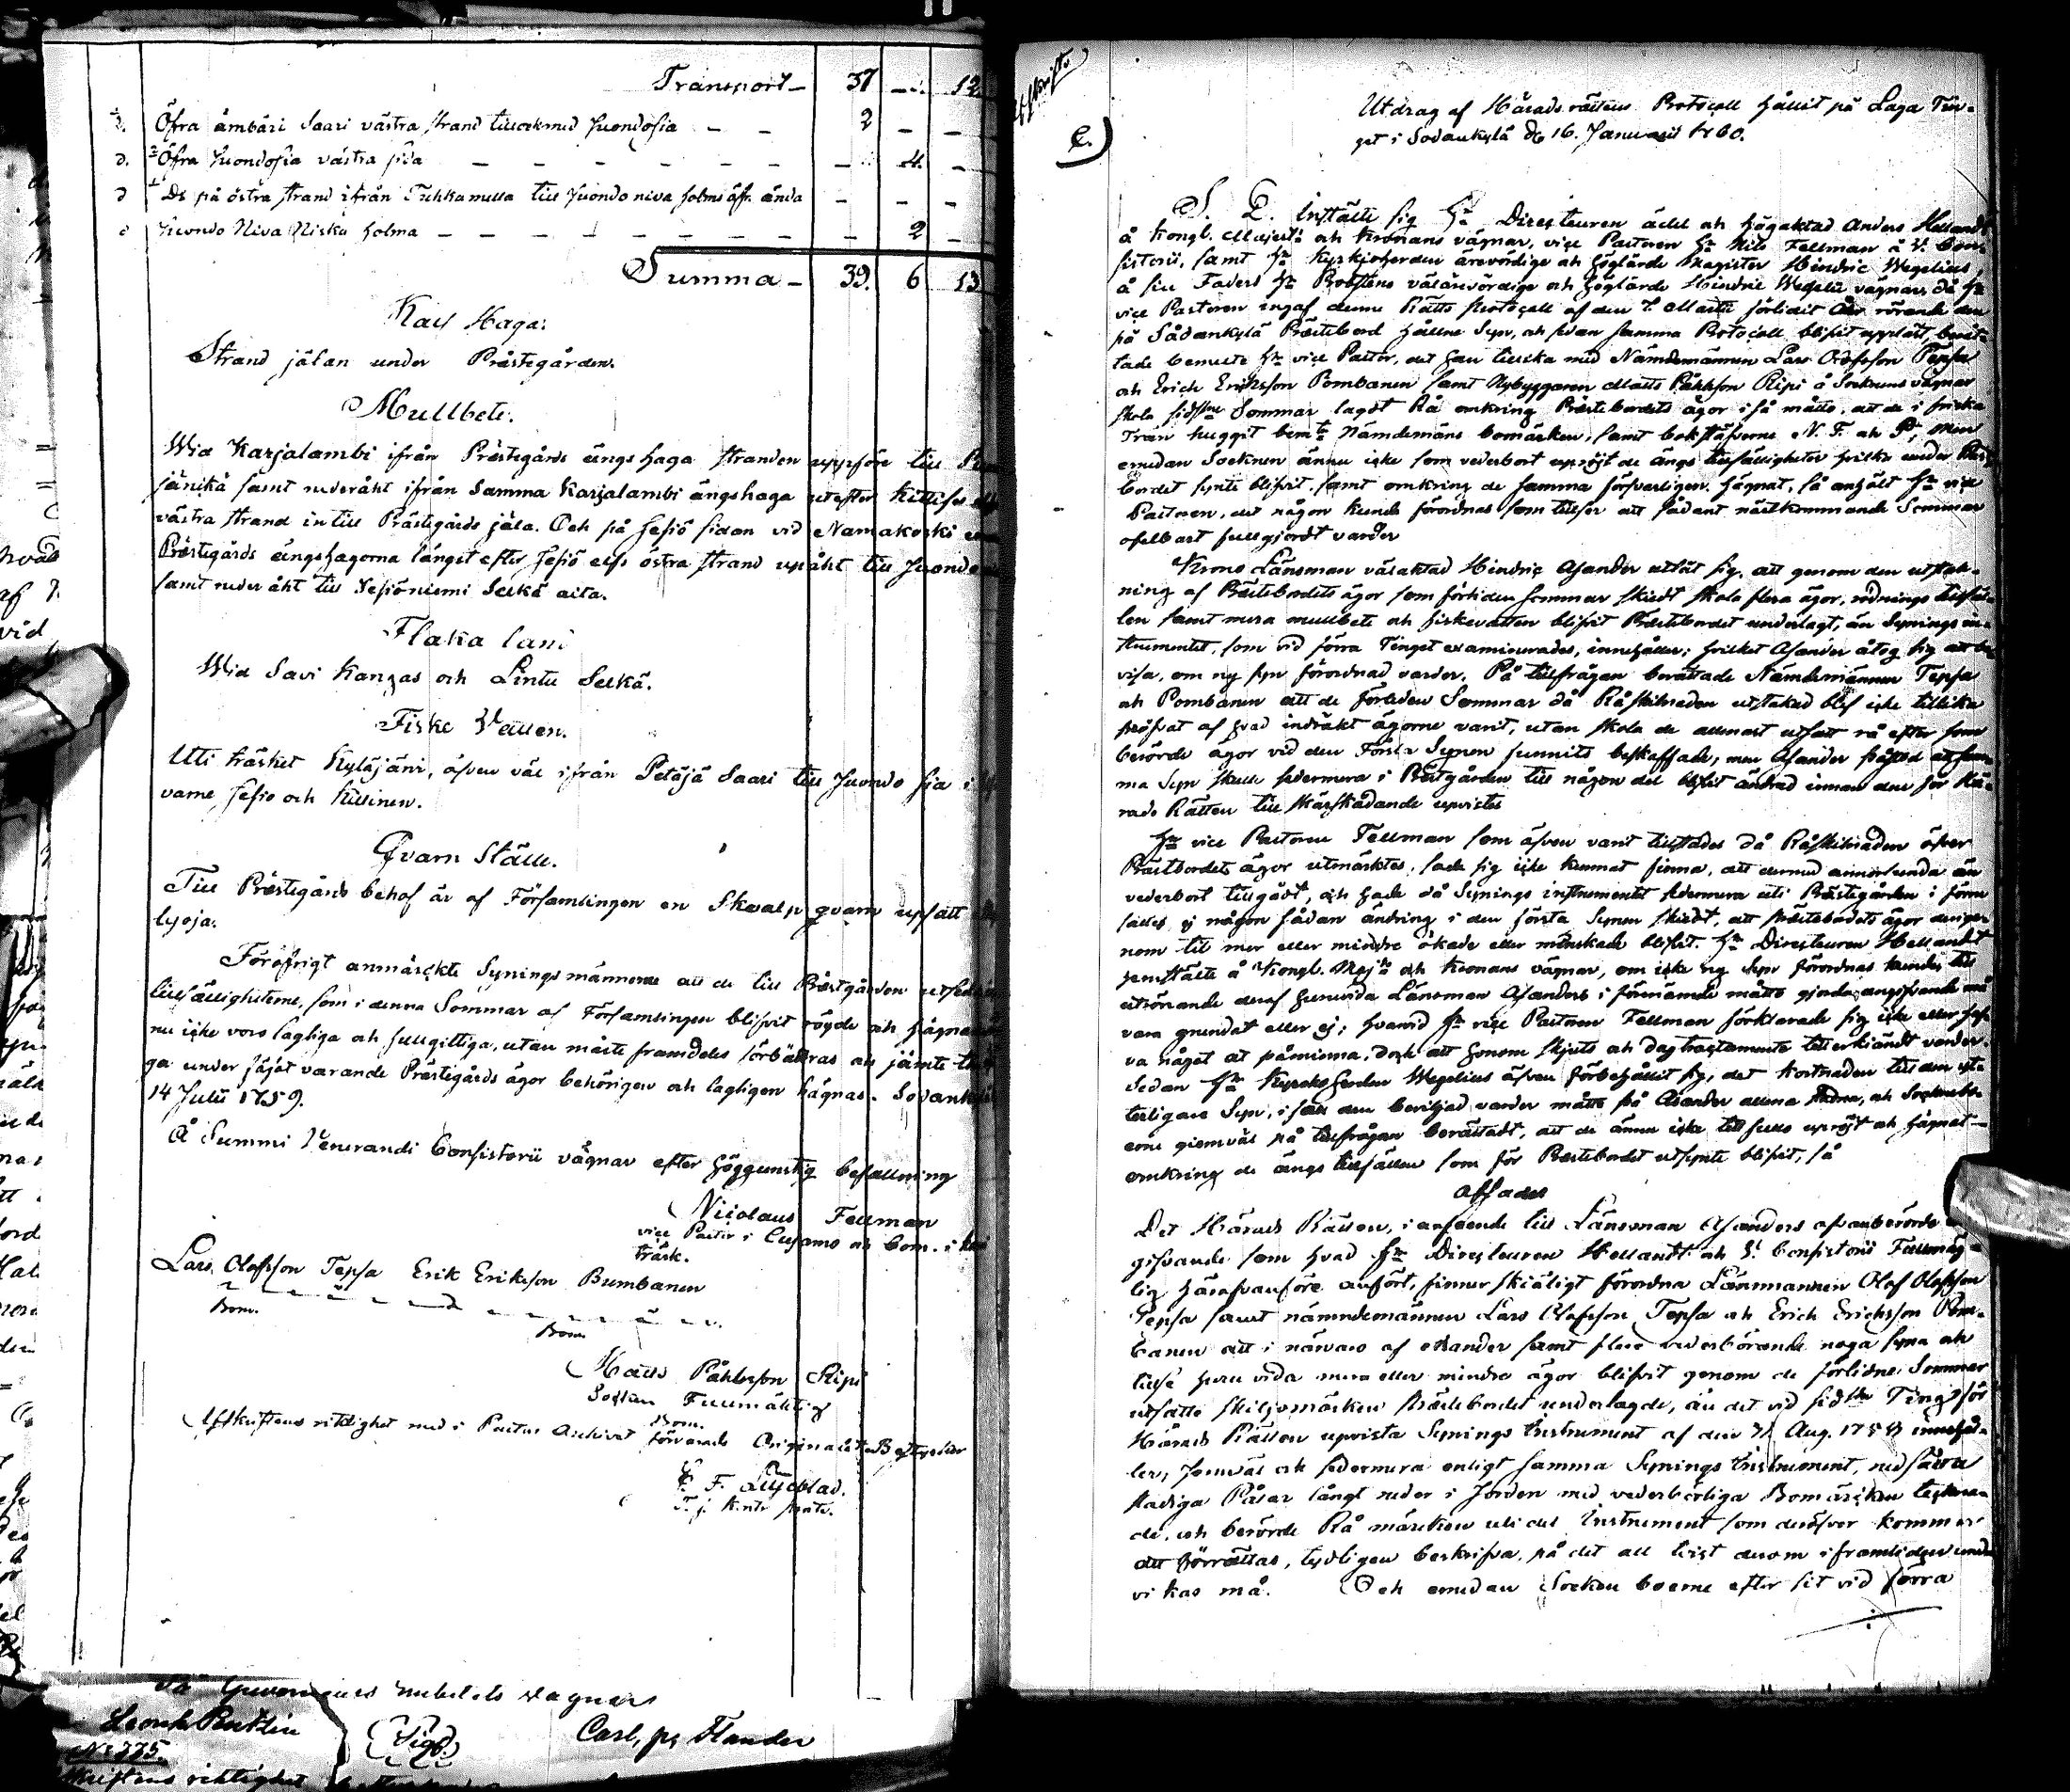 Transport – 37 – 12
Öfra ämbäri Saari västra strand tillsickmed Juondosia – – 2 – –
Öfra Juondosia västra sida – – – – 4. –
D:o på östra strand ifrån Tuhkamulla till Juondo niva holms öfr. ända – – –
Juondo Niva Niska holma – – – – 2 –
Summa – 39. 6 13
Kalf Haga:
Strand jälan under Prästegården.
Mullbete.
Wid Karjalambi ifrån Prästegårds ängs haga stranden uppföre till
jänikä samt nederåht ifrån samma Karjalambi ängshaga utefter Kittises
västra strand in till Prästegårds jäla. Och på Jesiö sidan vid Namakoski
Prästegårds ängshagorna längst efter Jesiö elfs östra strand upåht till Juondo
samt neder åht till Jesiöniemi Selkä aita.
Flaka land
Wid Savi Kangas och Lintu Selkä.
Fiske Vatten.
Uti träsket Kyläjärvi, äfven väl ifrån Petäjä Saari till Juondo sia i
varne Jesio och Kittinen.
Qvarn Ställe.
Till Prästegårds behof är af Församlingen en Skvalp qvarn upsatt
lyoja.
Föröfrigt anmärckte Syningsmännerne att de till Prästgården utsedde
tillfälligheterne, som i denna Sommar af Församlingen blifvit rögde och hägnade
nu icke voro lagliga och fullgiltiga, utan måste framdeles förbättras och jämte
ga under såjdt varande Prästegårds ägor behörigen och lagligen hägnas. Sodankylä
14 Julii 1759.
Å Summi Venerandi Consistorii vägnar efter höggunstig befallning
Nicolaus Fellman
vice Pastor i Cusamo och Com. i Kemi
träsk.
Lars Olofsson Tepsa Erik Eriksson Bumbanen
Bom. Bom.
Mats Påhlsson Ripi
Socken Fullmäktig
Bom.
Afskriftens riktighet med i Pastors Archivet förvarade Originalet Betygar
E. F. Liljeblad.
Så Guvernements Embetets vägnar
No 775. (Sigill) Carl, pr Flander
Afskriftens riktighet
Afskrift
C.)
Utdrag af Härads rättens Protocoll hållit på Laga Tin-
get i Sodankylä d. 16. Januarii 1760.
S. D. Instälte sig Hr Directeuren ädel och högaktad Anders Hellandt
å Kongl. Majestts och Kronans vägnar, vice Pastoren Hr Nils Fellman å V. Con-
sistorii, samt Hr Kyrkioherden ärevördige och höglärde Magister Hindric Wegelius
å sin Faders Hr Probstens välärevördige och höglärde Hindric Wegelii vägnar, då Hr
vice Pastoren ingaf denne Rätts Protocoll af den 7. Martii förlidit År rörande den
på Sådankylä Prästebord hållne Syn, och sedan samma Protocoll blifvit upplätt, berät-
tade bemelte Hr vice Pastor, det han tillika med Nämdemannen Lars Olofsson Tepsa
och Erich Eriksson Pombanen samt Nybyggaren Matts Påhlson Ripi å Socknens vägnar
skola sidstne Sommar lagdt Rå omkring Prästebordets ägor i så måtto, att de i friska
Trän huggit bemte Nämdemäns bomärken, samt bokstäfverne N. F. och P; Men
emedan Socknen ännu icke som vederbort uprögt de ängs tillfälligheter hvilka under Präste
bordet synte blifvit, samt omkring de samma försvarligen hägnat, så anhölt Hr vice
Pastoren, det någon kunde förordnas som tillser att sådant nästkommande Sommar
ofelbart fullgjordt varder
Krono Länsman välaktad Hindric Asander utlät sig, att genom den utstak-
ning af Prästebordets ägor som förliden Sommar skiedt skola flera ägor, rödnings tillfäl-
len samt mera mullbete och fiskevatten blifvit Prästebordet underlagt, än Synings in-
strumentet, som vid förra Tinget examinerades, innehåller; hvilket Asander åtog sig att be
visa, om ny syn förordnad varder. På tillfrågan berättade Nämdemännen Tepsa
och Pombanen att de förliden Sommar då Råskilnaden utstakad blef icke tillika
pröfvat af hvad indräkt ägorne varit, utan skola de allenast utsatt rå efter som
berörde ägor vid den Första Synen funnits beskaffade, men Asander påstod att sam-
ma Syn skulle sedermera i Prästgården till någon del blifvit ändrad innan den för Hä-
rads Rätten till skärskådande upvistes
Hr vice Pastoren Fellman som äfven varit tillstädes då Råskilnaden öfver
Prästbordets ägor utmärktes, sade sig icke kunnat finna, att dermed annorlunda än
vederbort tillgådt, och hade då Synings instrumentet sedermera uti Prästegården i förre
fattes ej någon sådan ändring i den första Synen skiedt, att prästebordets ägor derige-
nom til mer eller mindre ökade eller minskade blifvit. Hr Directeuren Hellandt
hemstälte å Kongl. Majts och Kronans vägnar, om icke ny Syn förordnas kunde, till
utrönande deraf huruvida Länsman Asanders i förmämde måtto gjorde angifvande må
vara grundat eller ej; hvarvid Hr vice Pastoren Fellman förklarade sig icke eller haf-
va något at påminna, dock att honom skjuts och dagtractamente tillerkiändt varder.
Sedan Hr Kyrckoherden Wegelius äfven förbehållit sig, det kostnaden till den yt-
terligare Syn, i fall den beviljad varder måtte på Asander allena stadna, och Socknebo-
erne giemväl på tillfrågan berättadt, att de ännu icke till fullo upröjt och hägnat
omkring de ängs tillfällen som för Prästebordet utsynte blifvit, så
afsades
Det Härads Rätten, i anseende till Länsman Asanders ofvanberörde an
gifvande som hvad Hr Directeuren Hellandt och V. Consistorii Fullmäg-
tig härofvanföre anfört, finner skiäligt förordna Länsmannen Olof Olofsson
Tepsa samt nämndemännen Lars Olofsson Tepsa och Erich Erichsson Pom-
banen att i närvaro af Asander samt flere vederbörande noga syna och
tillse huru vida mera eller mindre ägor blifvit genom de förlidne Sommar
utsatte skiljomärken Prästebordet underlagde, än det vid sidste Ting för
Härads Rätten upvista Synings Instrument af den 31 Aug. 1758 innehål-
ler, jemväl och sedermera enligt samma Synings Instrument, nedsätta
stadiga Pålar långt neder i Jorden med vederbörliga Bomärcken teckna-
de, och berörde Rå märcken uti det Instrument som deröfver kommer
att förrättas, tydligen beskrifva, på det all tvist derom i framtiden und-
vikas må. Och emedan Socken boerne efter sit vid förra